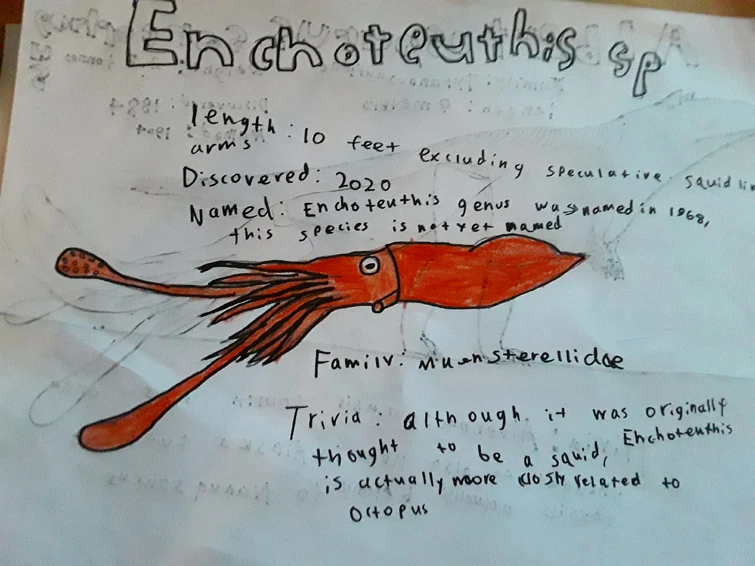 Enchoteuthis sp
length: 10 feet excluding speculative squid
arms
Discovered: 2020
Named: Enchoteuthis genus was named in 1968,
this species is not yet named
Family: Muensterellidae
Trivia: although it was originally
thought to be a squid, Enchoteuthis
is actually more closly related to
octopus